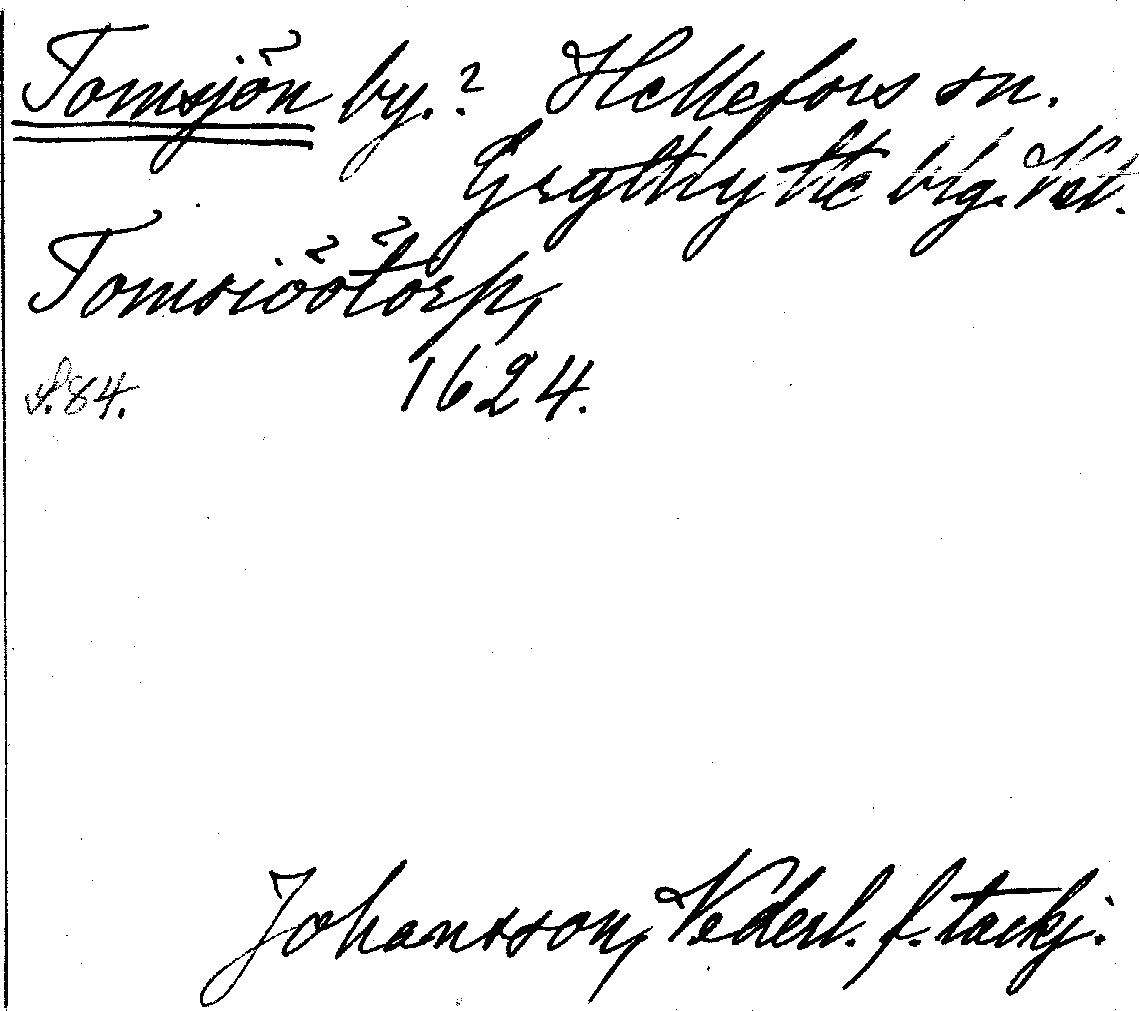 Tomsjön by.? Hellefors sn.
Grythytte blg. Vstm.
Tomsiöötorp,
S.84. 1624.
Johansson, Vederl. f. tackj.